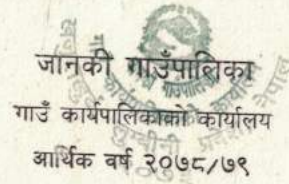 जानकी गाउँपालिका
गाउँ कार्यपालिकाको कार्यालय
आर्थिक वर्ष २०७८/७९